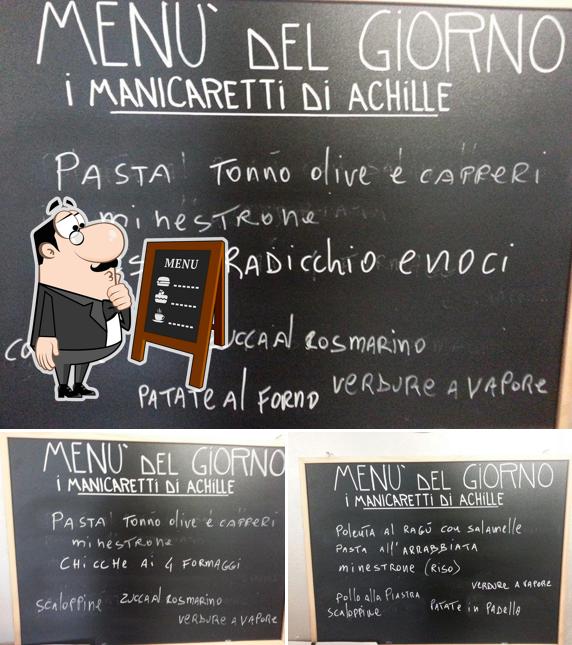 MENU' DEL GIORNO
i MANICARETTI Di ACHILLE
PASTA' Tonno olive e CAPPERI
minestrone
RADicchio e noci
MENU
ZUCCA Al ROSMARINO
PATATE Al FORNO VERDURE A VAPORE
MENU' DEL GIORNO
i MANICARETTI Di ACHILLE
PASTA' Tonno olive e CAPPERI
minestrone
CHiCCHE Ai 4 FORMAGGI
scaloppine ZUCCA Al ROSMARINO
VERDURE A VAPORE
MENU' DEL GIORNO
i MANICARETTI Di ACHILLE
Polenta al RAGÚ con salamelle
PASTA All'ARRABBIATA
minestrone (RISO)
VERDURE A VAPORE
pollo alla PIASTRA
scaloppine PATATE in PADELLA